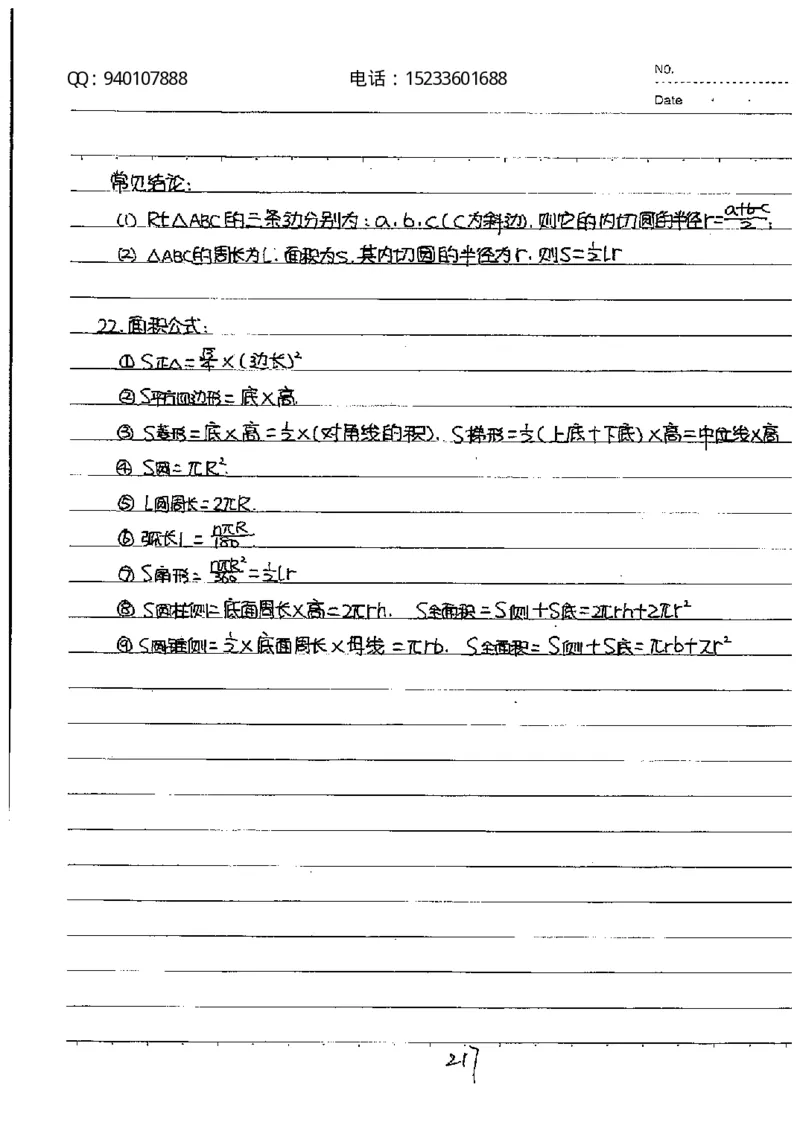 QQ：940107888 电话：15233601688 NO.
Date
常见结论：
(1) Rt△ABC的三条边分别为：a、b、c（c为斜边），则它的内切圆的半径r=\frac{a+b-c}{2}；
(2) △ABC的周长为l，面积为S，其内切圆的半径为r，则S=\frac{1}{2}lr
22. 面积公式：
① S正△=\frac{√3}{4}×(边长)²
② S平行四边形=底×高.
③ S菱形=底×高=\frac{1}{2}×(对角线的积)，S梯形=\frac{1}{2}(上底+下底)×高=中位线×高
④ S圆=πR².
⑤ L圆周长=2πR.
⑥ 弧长L=\frac{nπR}{180}.
⑦ S扇形=\frac{nπR²}{360}=\frac{1}{2}lr
⑧ S圆柱侧=底面周长×高=2πrh，S全面积=S侧+S底=2πrh+2πr²
⑨ S圆锥侧=\frac{1}{2}×底面周长×母线=πrb，S全面积=S侧+S底=πrb+πr²
217